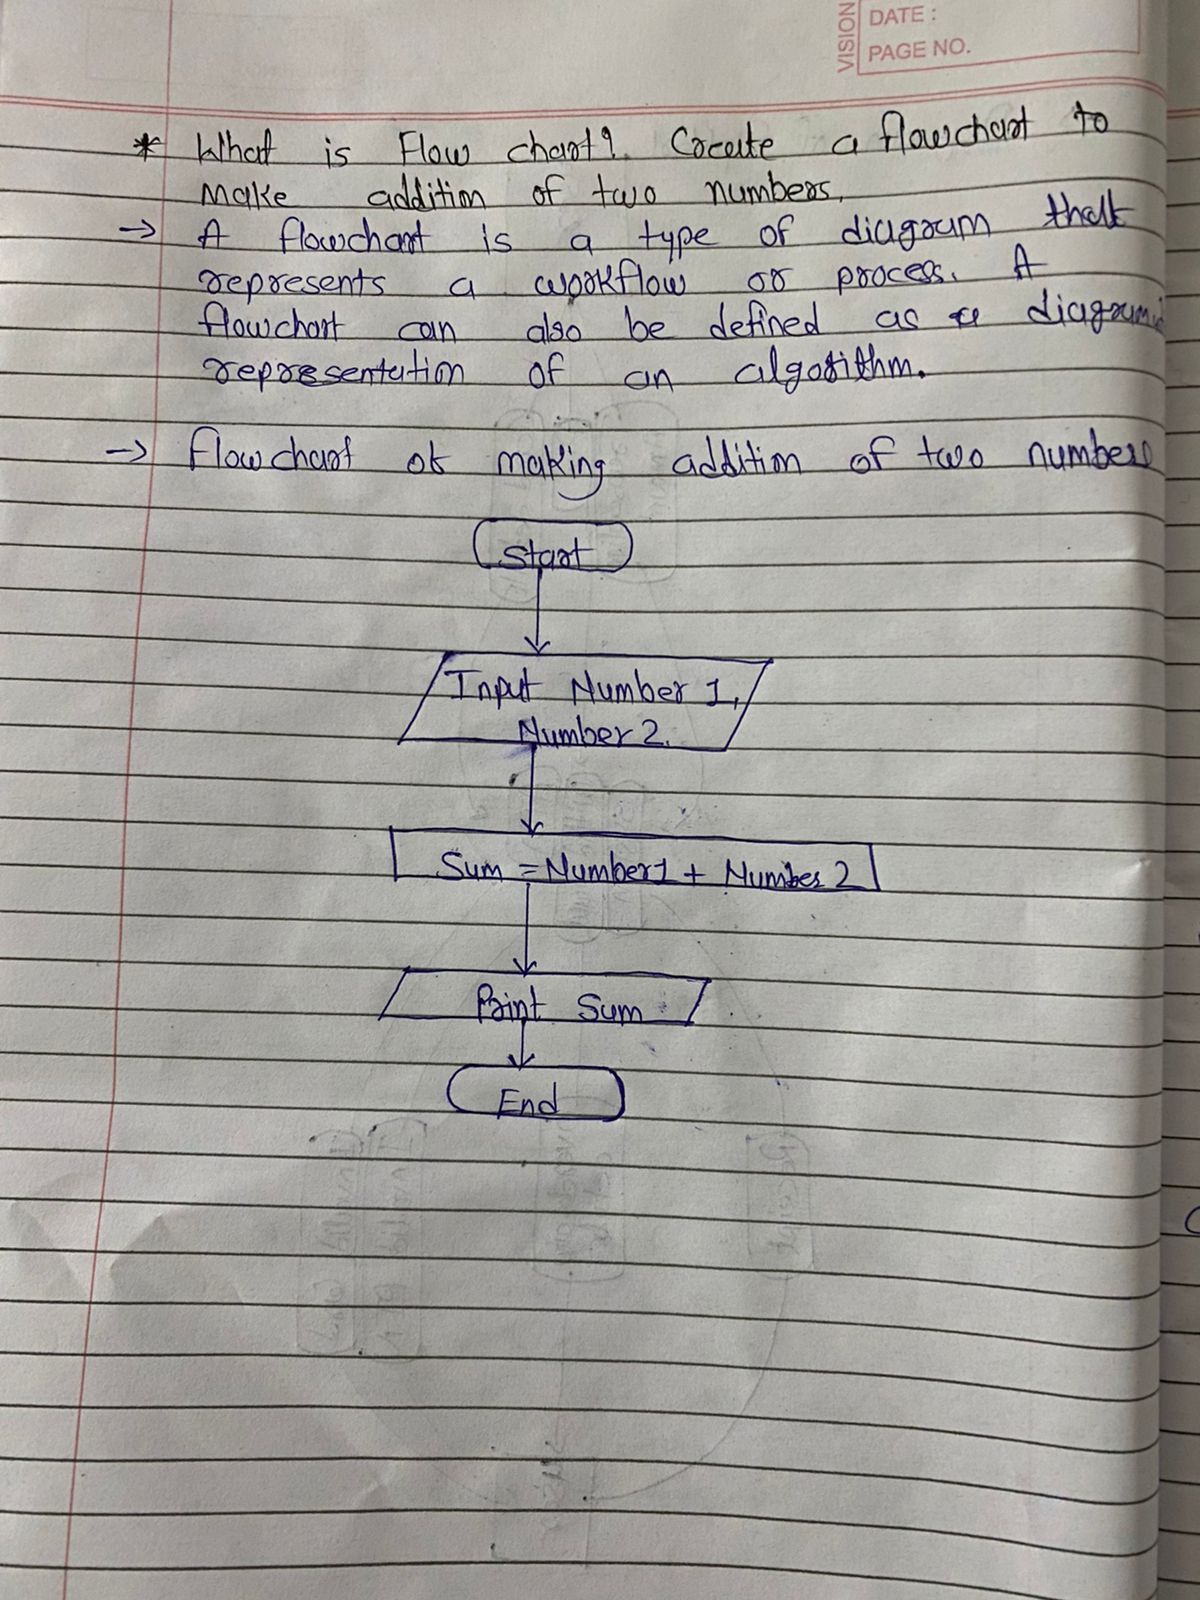 VISION
DATE :
PAGE NO.
* What is Flow chart? Create a flowchart to
make addition of two numbers.
→ A flowchart is a type of diagram that
represents a workflow or process. A
flowchart can also be defined as a diagram
representation of an algorithm.
→ Flowchart of making addition of two numbers
Start
Input Number 1,
Number 2.
Sum = Number1 + Number 2
Print Sum
End